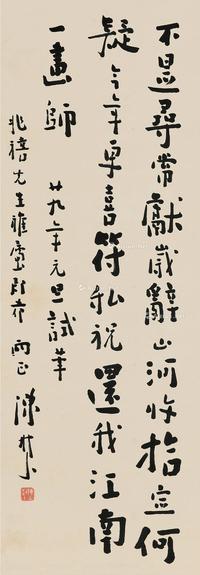 不是尋常獻歲辭山河收拾定何
疑今年卓喜符私祝還我江南
一畫師 廿九年元旦試筆
兆禧先生雅屬即希 正 陳樹人